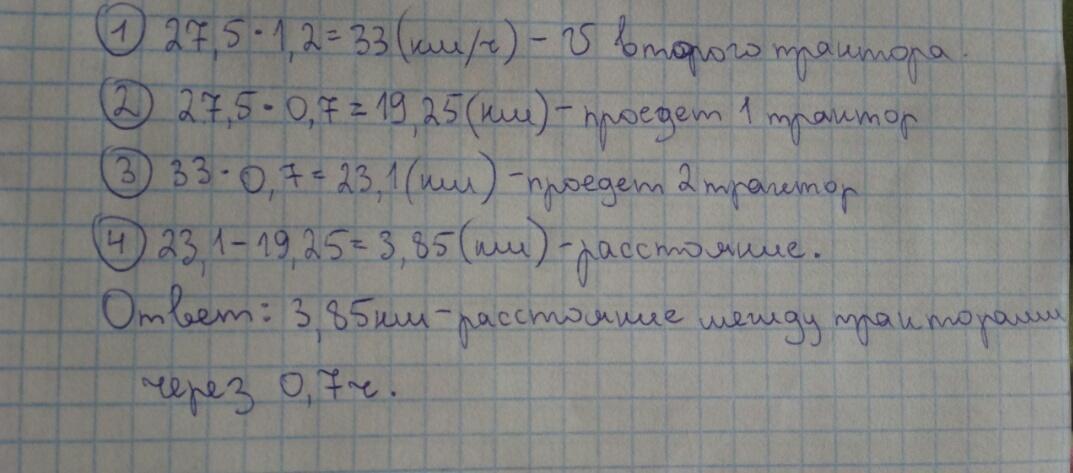 ① 27,5·1,2=33(км/ч) – υ второго трактора.
② 27,5·0,7=19,25(км) – проедет 1 трактор
③ 33·0,7=23,1(км) – проедет 2 трактор
④ 23,1–19,25=3,85(км) – расстояние.
Ответ: 3,85км – расстояние между тракторами
через 0,7ч.